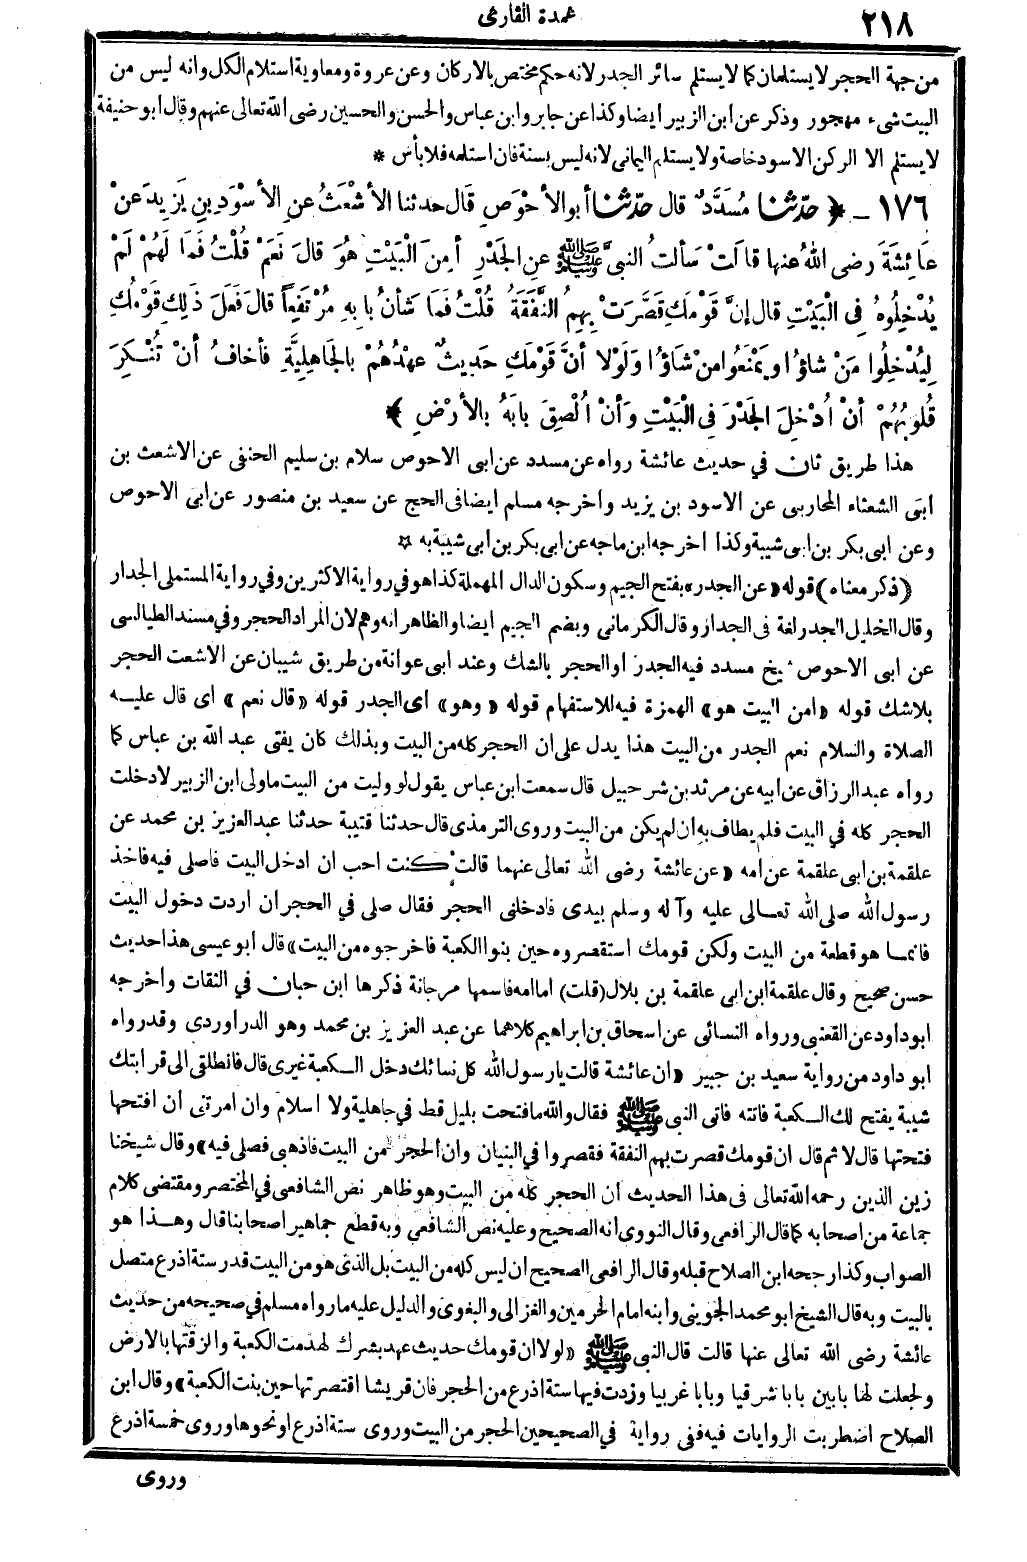 ٢١٨
عمدة القارئ
من جهة الحجر لا يستلمان كما لا يستلم سائر الجدر لانه حكم مختص بالاركان وعن عروة ومعاوية استلام الكل وانه ليس من
البيت شيء مهجور وذكر عن ابن الزبير ايضا وكذا عن جابر وابن عباس والحسن والحسين رضى الله تعالى عنهم وقال ابو حنيفة
لا يستلم الا الركن الاسود خاصة ولا يستلم اليمانى لانه ليس بسنة فان استلمه فلا بأس *
١٧٦ - ﴿ حدّثنا مُسَدَّدٌ قال حدّثنا أبو الأحْوَصِ قَال حدثنا الأشْعَثُ عنِ الأسْوَدِ بنِ يَزِيدَ عنْ
عَائِشَةَ رضى اللهُ عنها قالَتْ سَألتُ النبىَّ ﷺ عنِ الجَدْرِ أمِنَ الْبَيْتِ هُوَ قالَ نَعَمْ قُلْتُ فَمَا لَهُمْ لَمْ
يُدْخِلُوهُ فِى الْبَيْتِ قال إنَّ قَوْمَكِ قَصَّرَتْ بِهِمُ النَّفَقَةُ قُلْتُ فَمَا شَأنُ بابِهِ مُرْتَفِعاً قالَ فَعَلَ ذَلِكِ قَوْمُكِ
لِيُدْخِلُوا مَنْ شاؤُا ويَمْنَعُوا منْ شَاؤُا وَلَوْلا أنَّ قَوْمَكِ حَدِيثٌ عهْدُهُمْ بالجَاهِلِيَّةِ فأخافُ أنْ تُنْكِرَ
قُلُوبُهُمْ أنْ اُدْخِلَ الجَدْرَ فِى الْبَيْتِ وَأنْ اُلْصِقَ بابَهُ بالأرْضِ ﴾
هذا طريق ثان في حديث عائشة رواه عن مسدد عن ابى الاحوص سلام بن سليم الحنفى عن الاشعث بن
ابى الشعثاء المحاربى عن الاسود بن يزيد واخرجه مسلم ايضا فى الحج عن سعيد بن منصور عن ابى الاحوص
وعن ابى بكر بن ابى شيبة وكذا اخرجه ابن ماجه عن ابى بكر بن ابى شيبة به ☆
(ذكر معناه) قوله «عن الجدر» بفتح الجيم وسكون الدال المهملة كذا هو في رواية الاكثرين وفي رواية المستملى الجدار
وقال الخليل الجدر لغة فى الجدار وقال الكرمانى وبضم الجيم ايضا والظاهر انه وهم لان المراد الحجر وفي مسند الطيالسى
عن ابى الاحوص شيخ مسدد فيه الجدر او الحجر بالشك وعند ابى عوانة من طريق شيبان عن الاشعت الحجر
بلا شك قوله «امن البيت هو» الهمزة فيه للاستفهام قوله «وهو» اى الجدر قوله «قال نعم» اى قال عليه
الصلاة والسلام نعم الجدر من البيت هذا يدل على ان الحجر كله من البيت وبذلك كان يفتى عبد الله بن عباس كما
رواه عبد الرزاق عن ابيه عن مرثد بن شرحبيل قال سمعت ابن عباس يقول لو وليت من البيت ما ولى ابن الزبير لادخلت
الحجر كله في البيت فلم يطاف به ان لم يكن من البيت وروى الترمذى قال حدثنا قتيبة حدثنا عبد العزيز بن محمد عن
علقمة بن ابى علقمة عن امه «عن عائشة رضى الله تعالى عنهما قالت كنت احب ان ادخل البيت فاصلى فيه فاخذ
رسول الله صلى الله تعالى عليه وآله وسلم بيدى فادخلنى الحجر فقال صلى في الحجر ان اردت دخول البيت
فانما هو قطعة من البيت ولكن قومك استقصروه حين بنوا الكعبة فاخرجوه من البيت» قال ابو عيسى هذا حديث
حسن صحيح وقال علقمة ابن ابى علقمة بن بلال (قلت) اما امه فاسمها مرجانة ذكرها ابن حبان في الثقات واخرجه
ابو داود عن القعنبى ورواه النسائى عن اسحاق بن ابراهيم كلاهما عن عبد العزيز بن محمد وهو الدراوردى وقد رواه
ابو داود من رواية سعيد بن جبير «ان عائشة قالت يا رسول الله كل نسائك دخل الكعبة غيرى قال فانطلقى الى قرابتك
شيبة يفتح لك الكعبة فاتته فاتى النبى ﷺ فقال والله ما فتحت بليل قط في جاهلية ولا اسلام وان امرتنى ان افتحها
فتحتها قال لا ثم قال ان قومك قصرت بهم النفقة فقصروا في البنيان وان الحجر من البيت فاذهبى فصلى فيه» وقال شيخنا
زين الدين رحمه الله تعالى فى هذا الحديث ان الحجر كله من البيت وهو ظاهر نص الشافعى في المختصر ومقتضى كلام
جماعة من اصحابه كما قال الرافعى وقال النووى انه الصحيح وعليه نص الشافعى وبه قطع جماهير اصحابنا قال وهذا هو
الصواب وكذا رجحه ابن الصلاح قبله وقال الرافعى الصحيح ان ليس كله من البيت بل الذى هو من البيت قدر ستة اذرع متصل
بالبيت وبه قال الشيخ ابو محمد الجوينى وابنه امام الحرمين والغزالى والبغوى والدليل عليه ما رواه مسلم في صحيحه من حديث
عائشة رضى الله تعالى عنها قالت قال النبى ﷺ «لولا ان قومك حديث عهد بشرك لهدمت الكعبة والزقتها بالارض
ولجعلت لها بابين بابا شرقيا وبابا غربيا وزدت فيها ستة اذرع من الحجر فان قريشا اقتصرتها حين بنت الكعبة» وقال ابن
الصلاح اضطربت الروايات فيه ففى رواية في الصحيحين الحجر من البيت وروى ستة اذرع او نحوها وروى خمسة اذرع
وروى